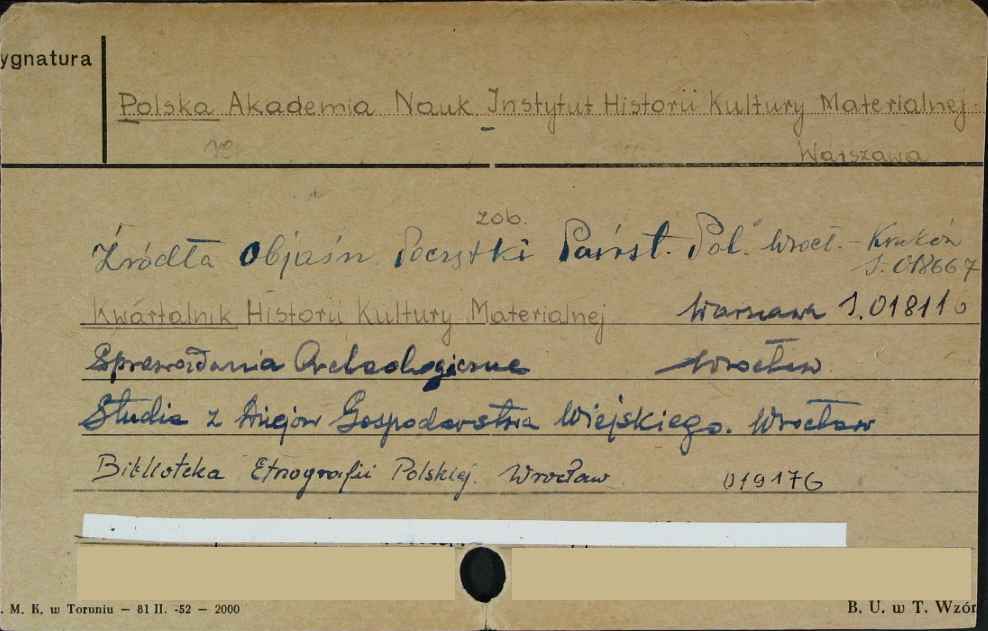 ygnatura
Polska Akademia Nauk Instytut Historii Kultury Materialnej.
Warszawa
zob.
Źródła Objaśn. Początki Państ. Pol. Wrocł. - Kraków
J. 018667
Kwartalnik Historii Kultury Materialnej Warszawa J. 018110
Sprawozdania Archeologiczne Wrocław
Studia z Dziejów Gospodarstwa Wiejskiego. Wrocław
Biblioteka Etnografii Polskiej. Wrocław 019176
. M. K. w Toruniu — 81 II. -52 — 2000
B. U. w T. Wzór